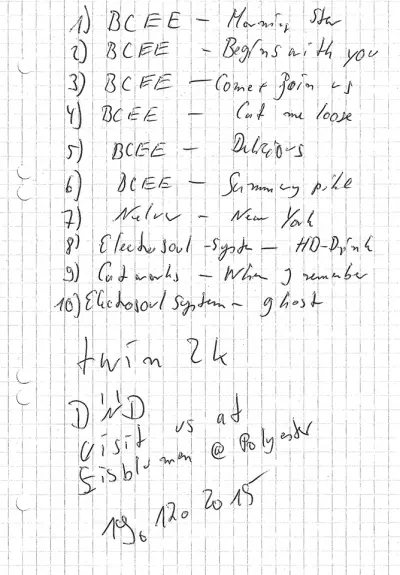 1) BCEE - Morning Star
2) BCEE - Begins with you
3) BCEE - Come & Join us
4) BCEE - Cut me loose
5) BCEE - Delicious
6) BCEE -
7) - New York
8) Electrosoul -System - HD-Drink
9) Cat works - When I remember
10) Electrosoul System - ghost
twin 2k
DND
visit us at
Eisblumen @ Polyester
19. 12. 2015